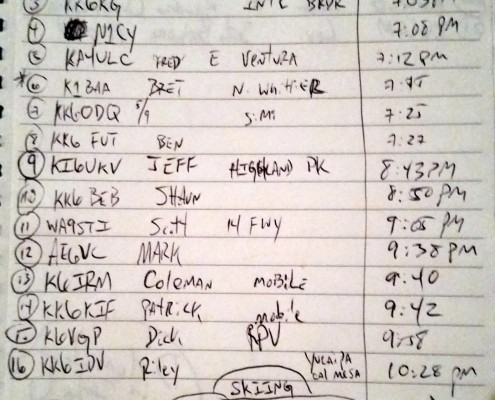 3 KK6KG INTL BRDR 7:03PM
4 N1CY 7:08 PM
5 KA4ULC FRED E VENTURA 7:12PM
* 6 K1BAA BRET N. WhittiER 7:15
7 KK6ODQ 5/9 Simi 7:25
8 KK6 FUT BEN 7:27
9 KI6UKV JEFF HIGHLAND PK 8:43PM
10 KK6 BEB SHAUN 8:50 PM
11 WA9STI Scott 14 FWY 9:05 PM
12 AE6VC MARK 9:38 PM
13 K6IRM Coleman MOBILE 9:40
14 KK6KIF PATRICK mobile 9:42
15 K6VGP Dick RPV 9:58
16 KK6IDV Riley YUCAIPA CALMESA 10:28 pm
SKIING